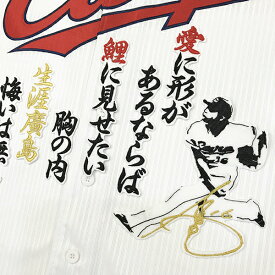 愛に形が
あるならば
鯉に見せたい
胸の内
生涯廣島
悔いは無